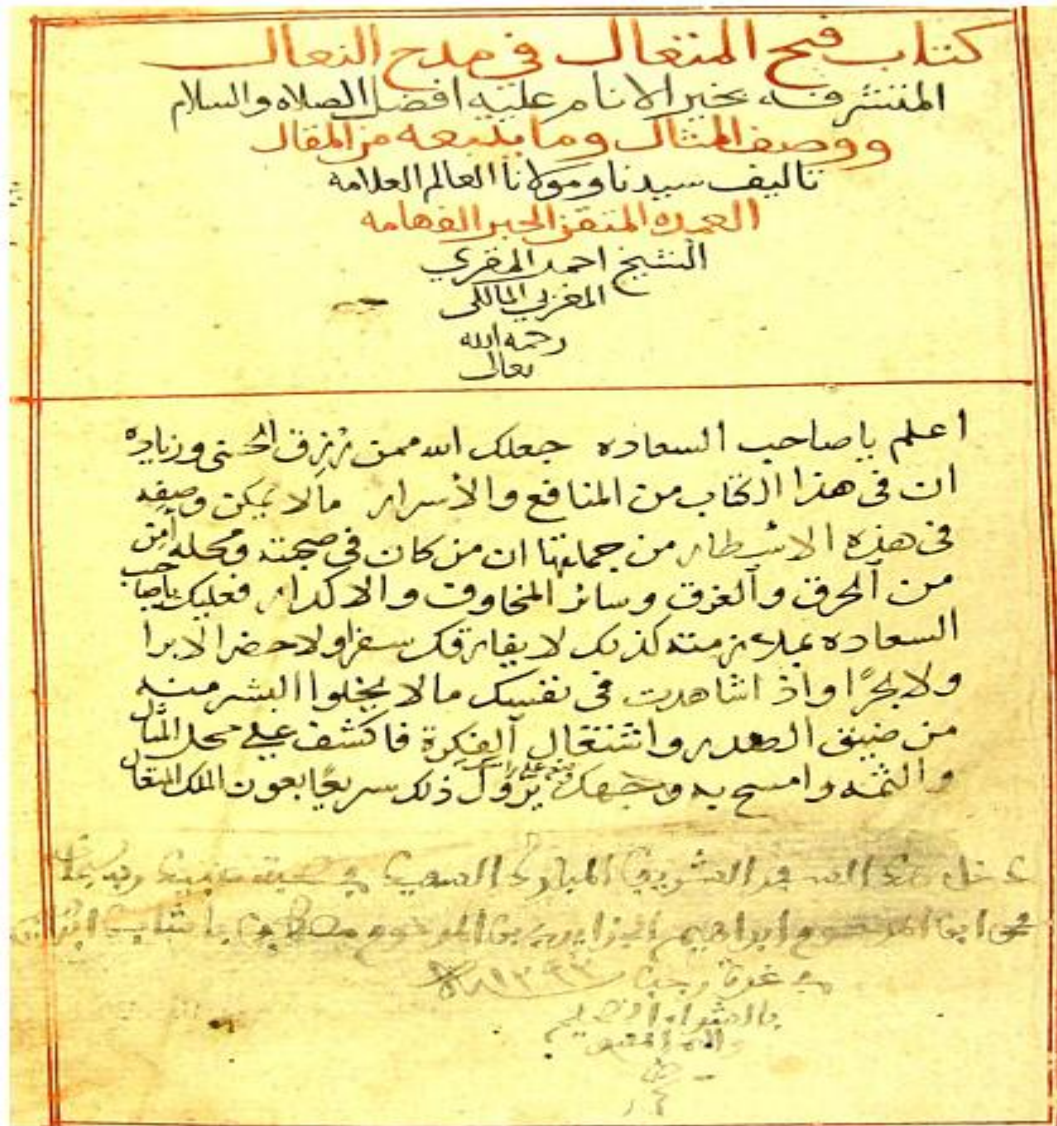 كتاب فتح المتعال في مدح النعال
المتشرفه بخير الانام عليه افضل الصلاه والسلام
ووصف المثال وما يتبعه من المقال
تاليف سيدنا ومولانا العالم العلامه
العمده المتقن الحبر الفهامه
الشيخ احمد المقري
المغربي المالكي
رحمه الله
تعالى
اعلم ياصاحب السعاده جعلك الله ممن رزق الحسنى وزياده
ان في هذا الكتاب من المنافع والأسرار مالا يمكن وصفه
في هذه الاسطار من جملتها ان من كان في صحبته ومحله أمن
من الحرق والغرق وسائر المخاوف والاكدار فعليك ياصاحب
السعاده بملازمته كذلك لا يفارقك سفرا ولا حضرا لا برا
ولا بحرًا واذا شاهدت في نفسك مالا يخلوا البشر منه
من ضيق الصدر واشتغال الفكرة فاكشف على محل المثال
والثمه وامسح به وجهك يزول ذلك سريعًا بعون الملك المتعال
دخل هذا السفر الشريف المبارك السعيد في
ابراهيم الجزايري بن المرحوم باشا
في غرة رجب
بالشراء